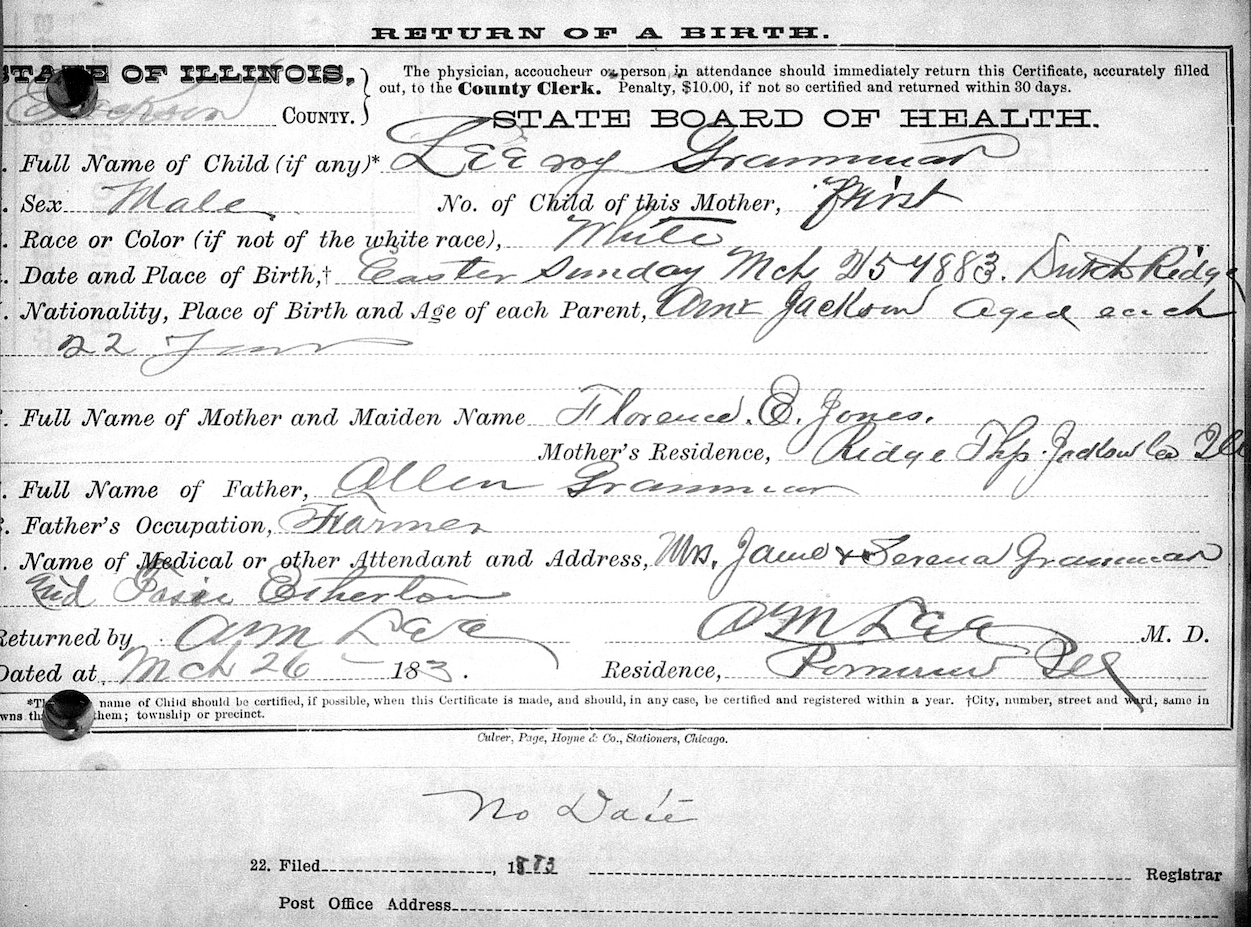 RETURN OF A BIRTH.
STATE OF ILLINOIS,
Jackson COUNTY.
The physician, accoucheur or person in attendance should immediately return this Certificate, accurately filled
out, to the County Clerk. Penalty, $10.00, if not so certified and returned within 30 days.
STATE BOARD OF HEALTH.
. Full Name of Child (if any)* LEEroy Grammar
. Sex Male No. of Child of this Mother, first
. Race or Color (if not of the white race), White
. Date and Place of Birth,† Easter Sunday Mch 25 1883. Dutch Ridge
. Nationality, Place of Birth and Age of each Parent, Amr Jackson aged each
22
. Full Name of Mother and Maiden Name Florence. E. Jones.
Mother's Residence, Ridge Thp. Jackson Co Ill
. Full Name of Father, Allen Grammar
. Father's Occupation, Farmer
. Name of Medical or other Attendant and Address, Mrs. Jane & Serena Grammar
Etherton
Returned by A M Lee A M Lee M. D.
Dated at, Mch 26 183. Residence, Pomona Ill
name of Child should be certified, if possible, when this Certificate is made, and should, in any case, be certified and registered within a year. †City, number, street and ward, same in
them; township or precinct.
Culver, Page, Hoyne & Co., Stationers, Chicago.
No Date
22. Filed , 1883 Registrar
Post Office Address